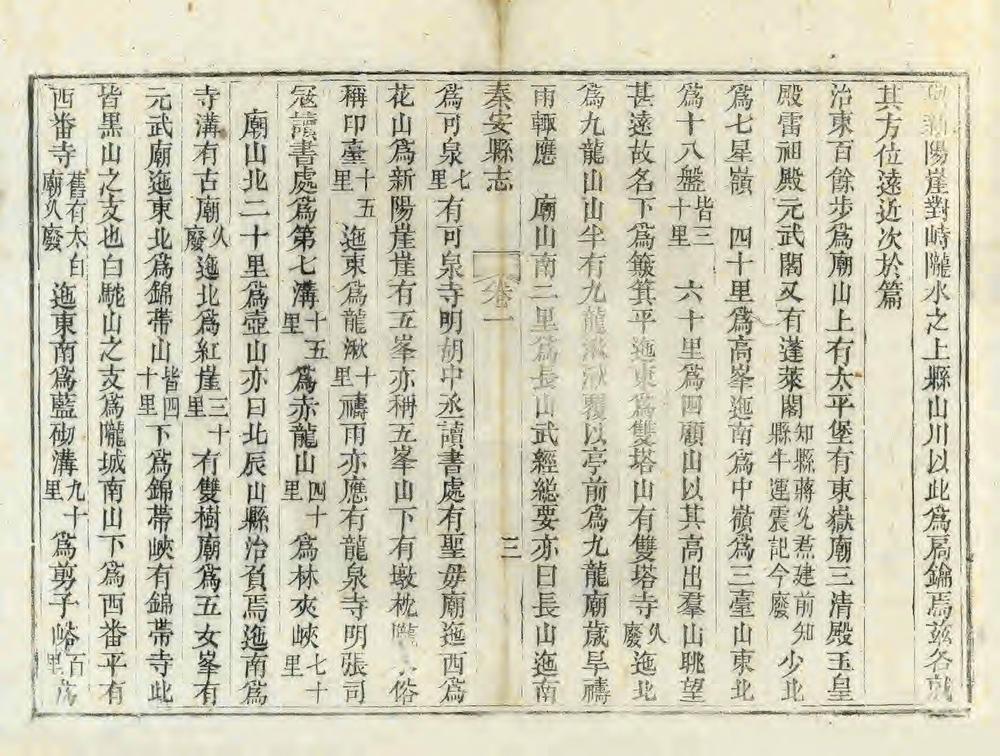 陽崖對峙隴水之上縣山川以此爲扃鑰焉茲各就
其方位遠近次於篇
治東百餘步爲廟山上有太平堡有東嶽廟三清殿玉皇
殿雷祖殿元武閣又有蓬萊閣知縣蔣允焄建前知縣牛運震記今廢少北
爲七星嶺 四十里爲高峯迤南爲中嶺爲三臺山東北
爲十八盤皆三十里 六十里爲四顧山以其高出羣山眺望
甚遠故名下爲簸箕平迤東爲雙塔山有雙塔寺久廢迤北
爲九龍山山半有九龍湫湫覆以亭前爲九龍廟歲旱禱
雨輒應 廟山南二里爲長山武經總要亦曰長山迤南
秦安縣志 卷一 三
爲可泉七里有可泉寺明胡中丞讀書處有聖毋廟迤西爲
花山爲新陽崖崖有五峯亦稱五峯山下有墩枕隴水俗
稱印臺十五里 迤東爲龍湫十里禱雨亦應有龍泉寺明張司
寇讀書處爲第七溝十五里 爲赤龍山四十里 爲林夾峽七十里
廟山北二十里爲壺山亦曰北辰山縣治負焉迤南爲
寺溝有古廟久廢迤北爲紅崖三十里 有雙樹廟爲五女峯有
元武廟迤東北爲錦帶山皆四十里下爲錦帶峽有錦帶寺此
皆黑山之支也白駝山之支爲隴城南山下爲西番平有
西番寺舊有太白廟久廢 迤東南爲藍砌溝九十里 爲剪子峪百里